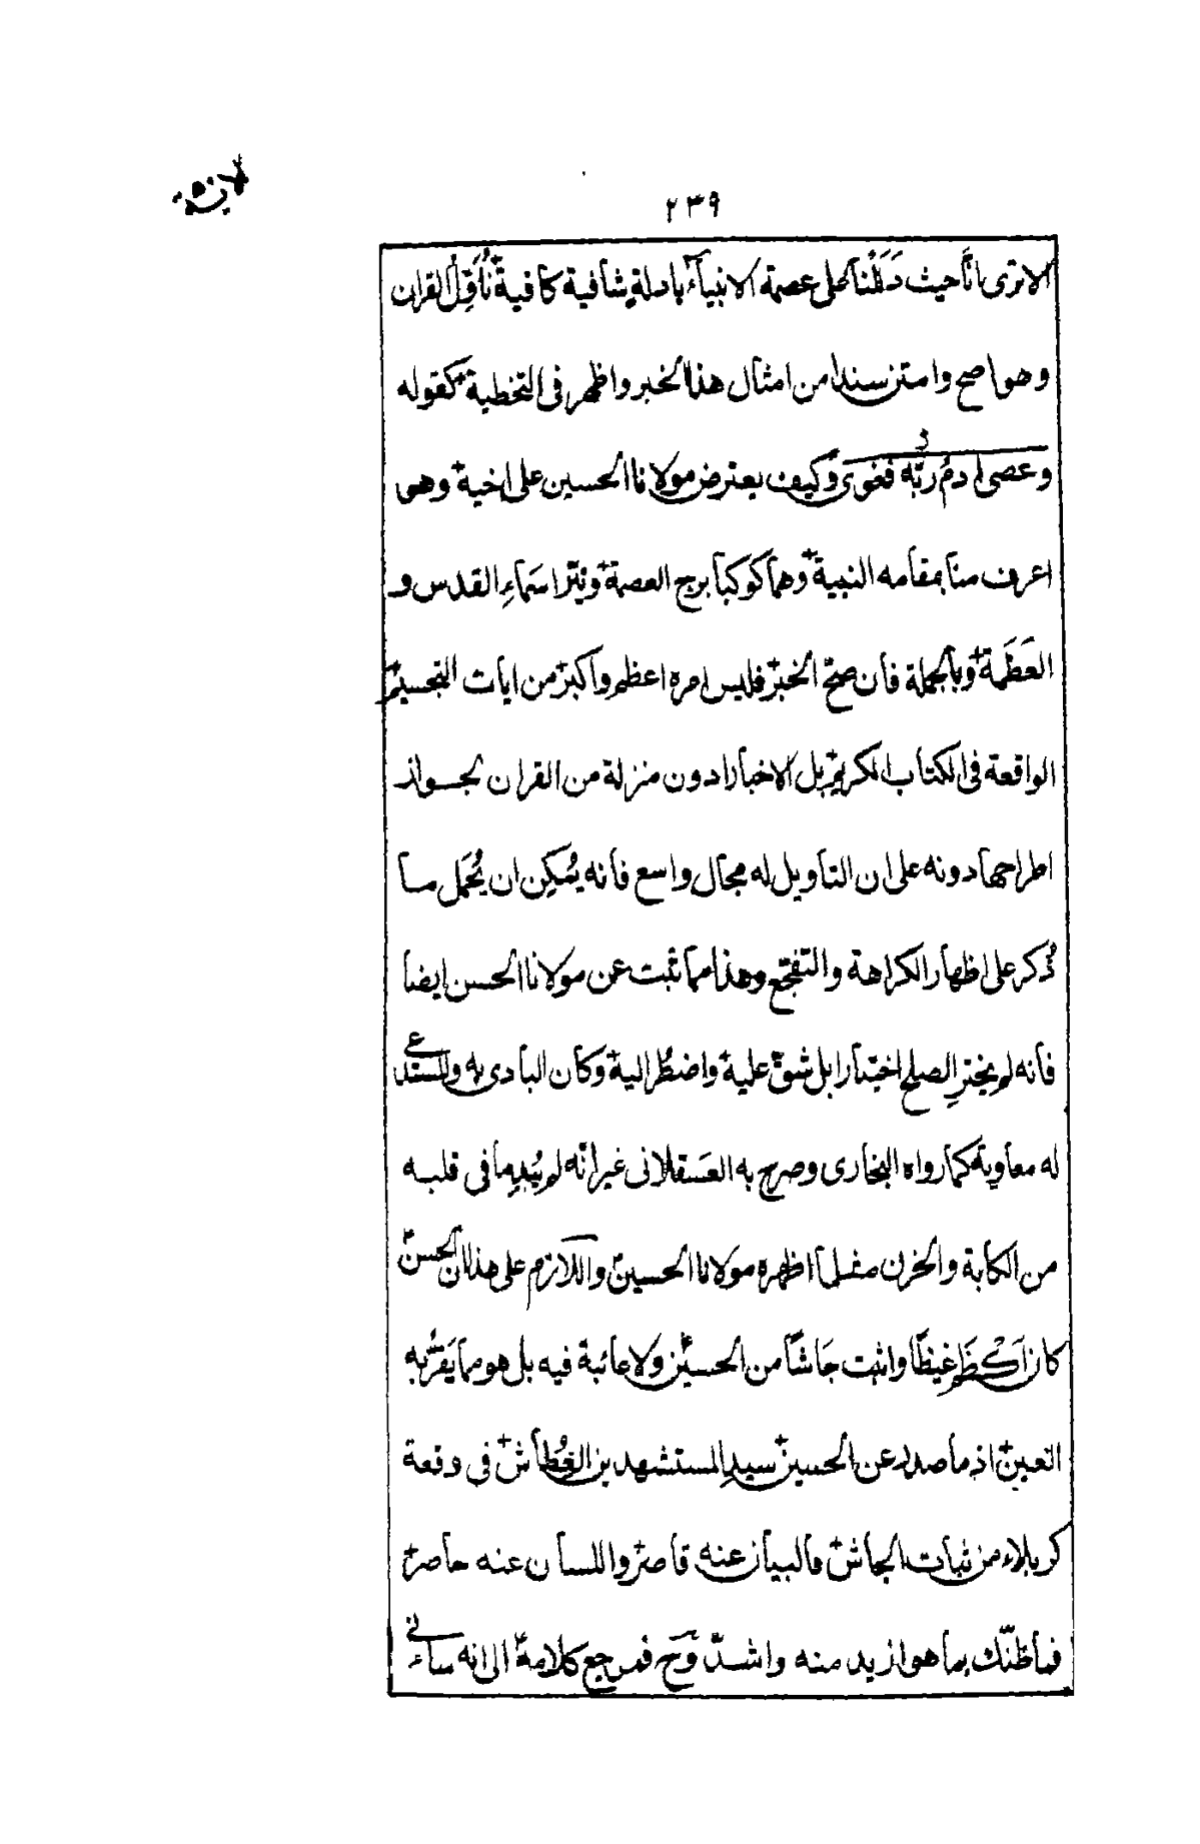 ٢٣٩
الاترى انّا حيث دَلَلْنا على عصمة الانبيآء بادلةٍ شافية كافية نُأَوِّلُ القران
وهو اصح وامتن سندا من امثال هذا الخبر واظهر فى التخطية كقوله
وعصى ادمُ ربَّه فغوى وكيف يعترض مولانا الحسين على اخيه وهو
اعرف منا بمقامه النبيه وهما كوكبا برج العصمة ونيّرا سَماءِ القدس و
العَظَمة وبالجملة فان صحّ الخبر فليس امره اعظم واكبر من ايات التجسيم
الواقعة فى الكتاب الكريم بل الاخبار ادون منزلة من القران لجواز
اطراحها دونه على ان التاويل له مجال واسع فانه يُمكِن ان يُحمَل ما
ذُكر على اظهار الكراهة والتفجّع وهذا مما ثبت عن مولانا الحسن ايضا
فانه لم يخترِ الصلح اختيارا بل شقّ عليه واضطُر اليه وكان البادى به والمستدعى
له معاوية كما رواه البخارى وصرح به العَسقلانى غير انّه لم يُبدِ ما فى قلبه
من الكابة والحزن مثلما اظهره مولانا الحسين واللازم على هذا ان الحسن
كان اَكْظَم غيظًا واثبت جَاشًا من الحسين ولا عائبة فيه بل هو مما يَقَرُّ به
العين اذ ما صدر عن الحسين سيدِ المستشهدين العُطاش فى وقعة
كربلاء من ثبات الجاش فالبيان عنه قاصر واللسان عنه حاصر
فما ظنّك بما هو ازيد منه واشدّ وَح فمرجع كلامه الى انه ساءنى